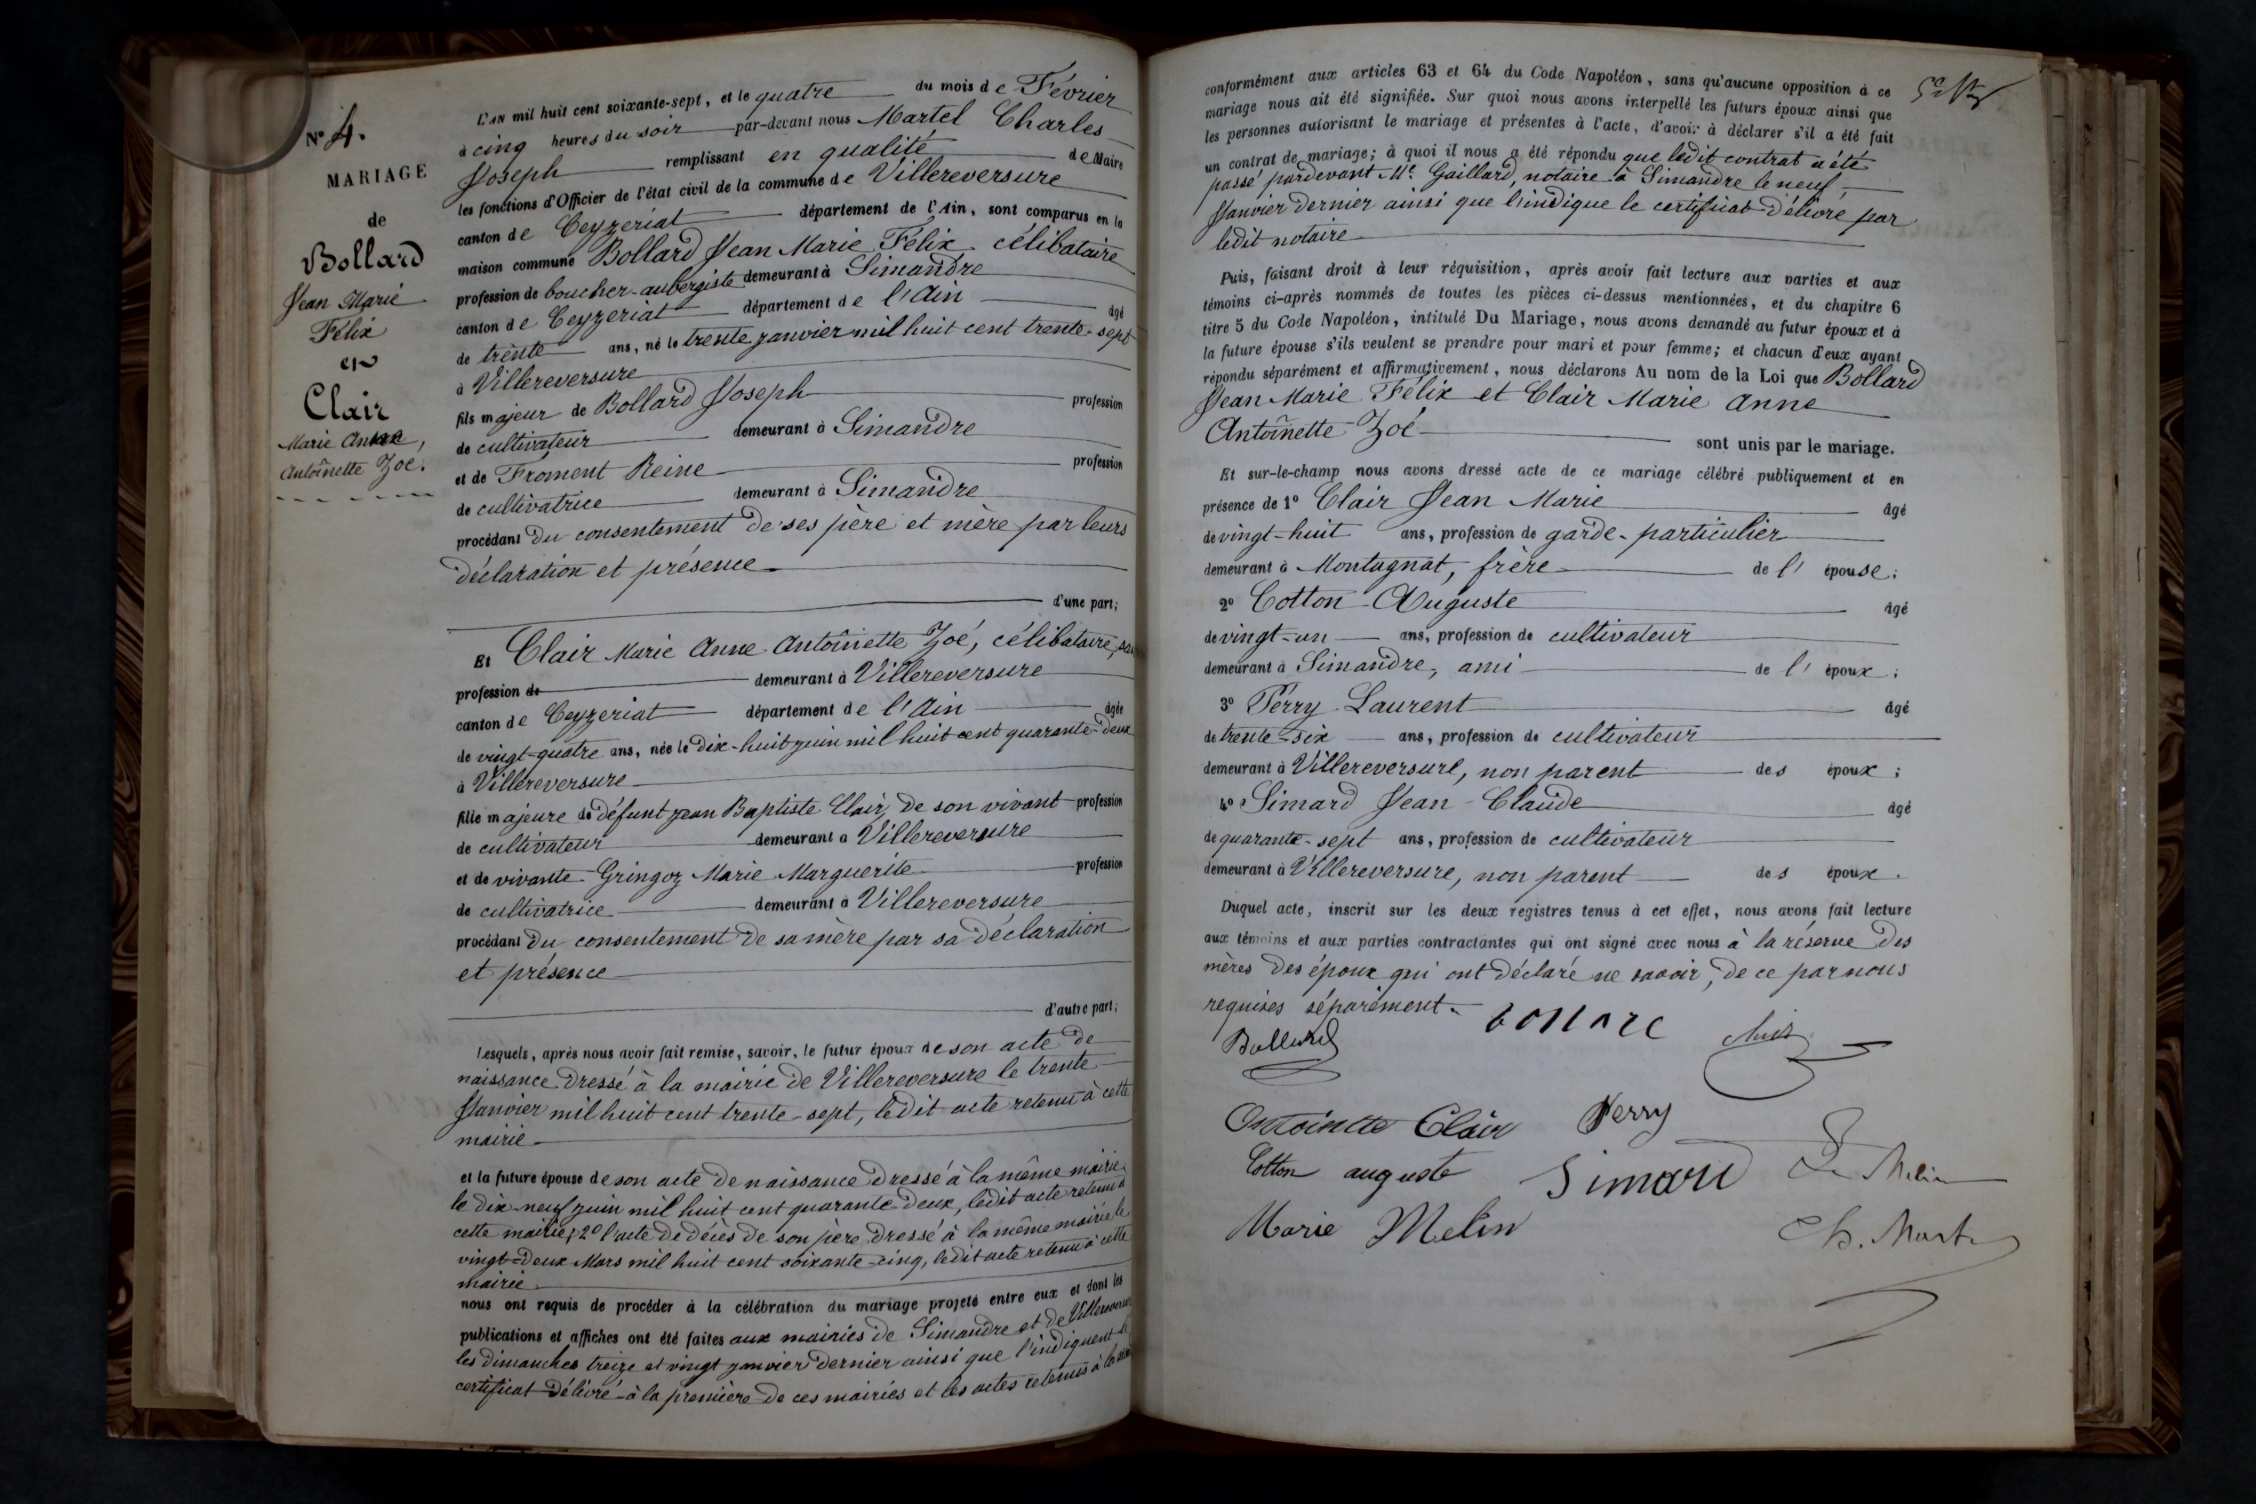 N° 4.
MARIAGE
de
Bollard
Jean Marie
Félix
et
Clair
Marie Anne,
Antoinette Zoé.
L'AN mil huit cent soixante-sept, et le quatre du mois de Février
à cinq heures du soir par-devant nous Martel Charles
Joseph remplissant en qualité de Maire
les fonctions d'Officier de l'état civil de la commune de Villereversure
canton de Ceyzeriat département de l'Ain, sont comparus en la
maison commune Bollard Jean Marie Félix célibataire
profession de boucher-aubergiste demeurant à Simandre
canton de Ceyzeriat département de l'Ain âgé
de trente ans, né le trente janvier mil huit cent trente-sept
à Villereversure
fils majeur de Bollard Joseph profession
de cultivateur demeurant à Simandre
et de Froment Reine profession
de cultivatrice demeurant à Simandre
procédant du consentement de ses père et mère par leurs
déclaration et présence
d'une part;
Et Clair Marie Anne Antoinette Zoé, célibataire, sans
profession de demeurant à Villereversure
canton de Ceyzeriat département de l'Ain âgée
de vingt-quatre ans, née le dix-huit juin mil huit cent quarante-deux
à Villereversure
fille majeure de défunt Jean Baptiste Clair, de son vivant profession
de cultivateur demeurant à Villereversure
et de vivante Gringoz Marie Marguerite profession
de cultivatrice demeurant à Villereversure
procédant du consentement de sa mère par sa déclaration
et présence
d'autre part;
Lesquels, après nous avoir fait remise, savoir, le futur époux de son acte de
naissance dressé à la mairie de Villereversure le trente
Janvier mil huit cent trente-sept, ledit acte retenu à cette
mairie
et la future épouse de son acte de naissance dressé à la même mairie
le dix-neuf juin mil huit cent quarante-deux, ledit acte retenu à
cette mairie; 2° l'acte de décès de son père dressé à la même mairie le
vingt-deux Mars mil huit cent soixante-cinq, ledit acte retenu à cette
mairie
nous ont requis de procéder à la célébration du mariage projeté entre eux et dont les
publications et affiches ont été faites aux mairies de Simandre et de Villereversure
les dimanches treize et vingt janvier dernier ainsi que l'indiquent le
certificat délivré à la première de ces mairies et les actes retenus à la
conformément aux articles 63 et 64 du Code Napoléon, sans qu'aucune opposition à ce
mariage nous ait été signifiée. Sur quoi nous avons interpellé les futurs époux ainsi que
les personnes autorisant le mariage et présentes à l'acte, d'avoir à déclarer s'il a été fait
un contrat de mariage; à quoi il nous a été répondu que ledit contrat a été
passé pardevant Me. Gaillard, notaire à Simandre le neuf
Janvier dernier ainsi que l'indique le certificat délivré par
ledit notaire
Puis, faisant droit à leur réquisition, après avoir fait lecture aux parties et aux
témoins ci-après nommés de toutes les pièces ci-dessus mentionnées, et du chapitre 6
titre 5 du Code Napoléon, intitulé Du Mariage, nous avons demandé au futur époux et à
la future épouse s'ils veulent se prendre pour mari et pour femme; et chacun d'eux ayant
répondu séparément et affirmativement, nous déclarons Au nom de la Loi que Bollard
Jean Marie Félix et Clair Marie Anne
Antoinette Zoé sont unis par le mariage.
Et sur-le-champ nous avons dressé acte de ce mariage célébré publiquement et en
présence de 1° Clair Jean Marie âgé
de vingt-huit ans, profession de garde-particulier
demeurant à Montagnat, frère de l' épouse;
2° Cotton Auguste âgé
de vingt-un ans, profession de cultivateur
demeurant à Simandre, ami de l' époux;
3° Perry Laurent âgé
de trente-six ans, profession de cultivateur
demeurant à Villereversure, non parent des époux;
4° Simard Jean-Claude âgé
de quarante-sept ans, profession de cultivateur
demeurant à Villereversure, non parent des époux.
Duquel acte, inscrit sur les deux registres tenus à cet effet, nous avons fait lecture
aux témoins et aux parties contractantes qui ont signé avec nous à la réserve des
mères des époux qui ont déclaré ne savoir, de ce par nous
requises séparément.
Bollard bollard Clair
Antoinette Clair Perry
Cotton auguste Simard Melin
Marie Melin Ch. Martel